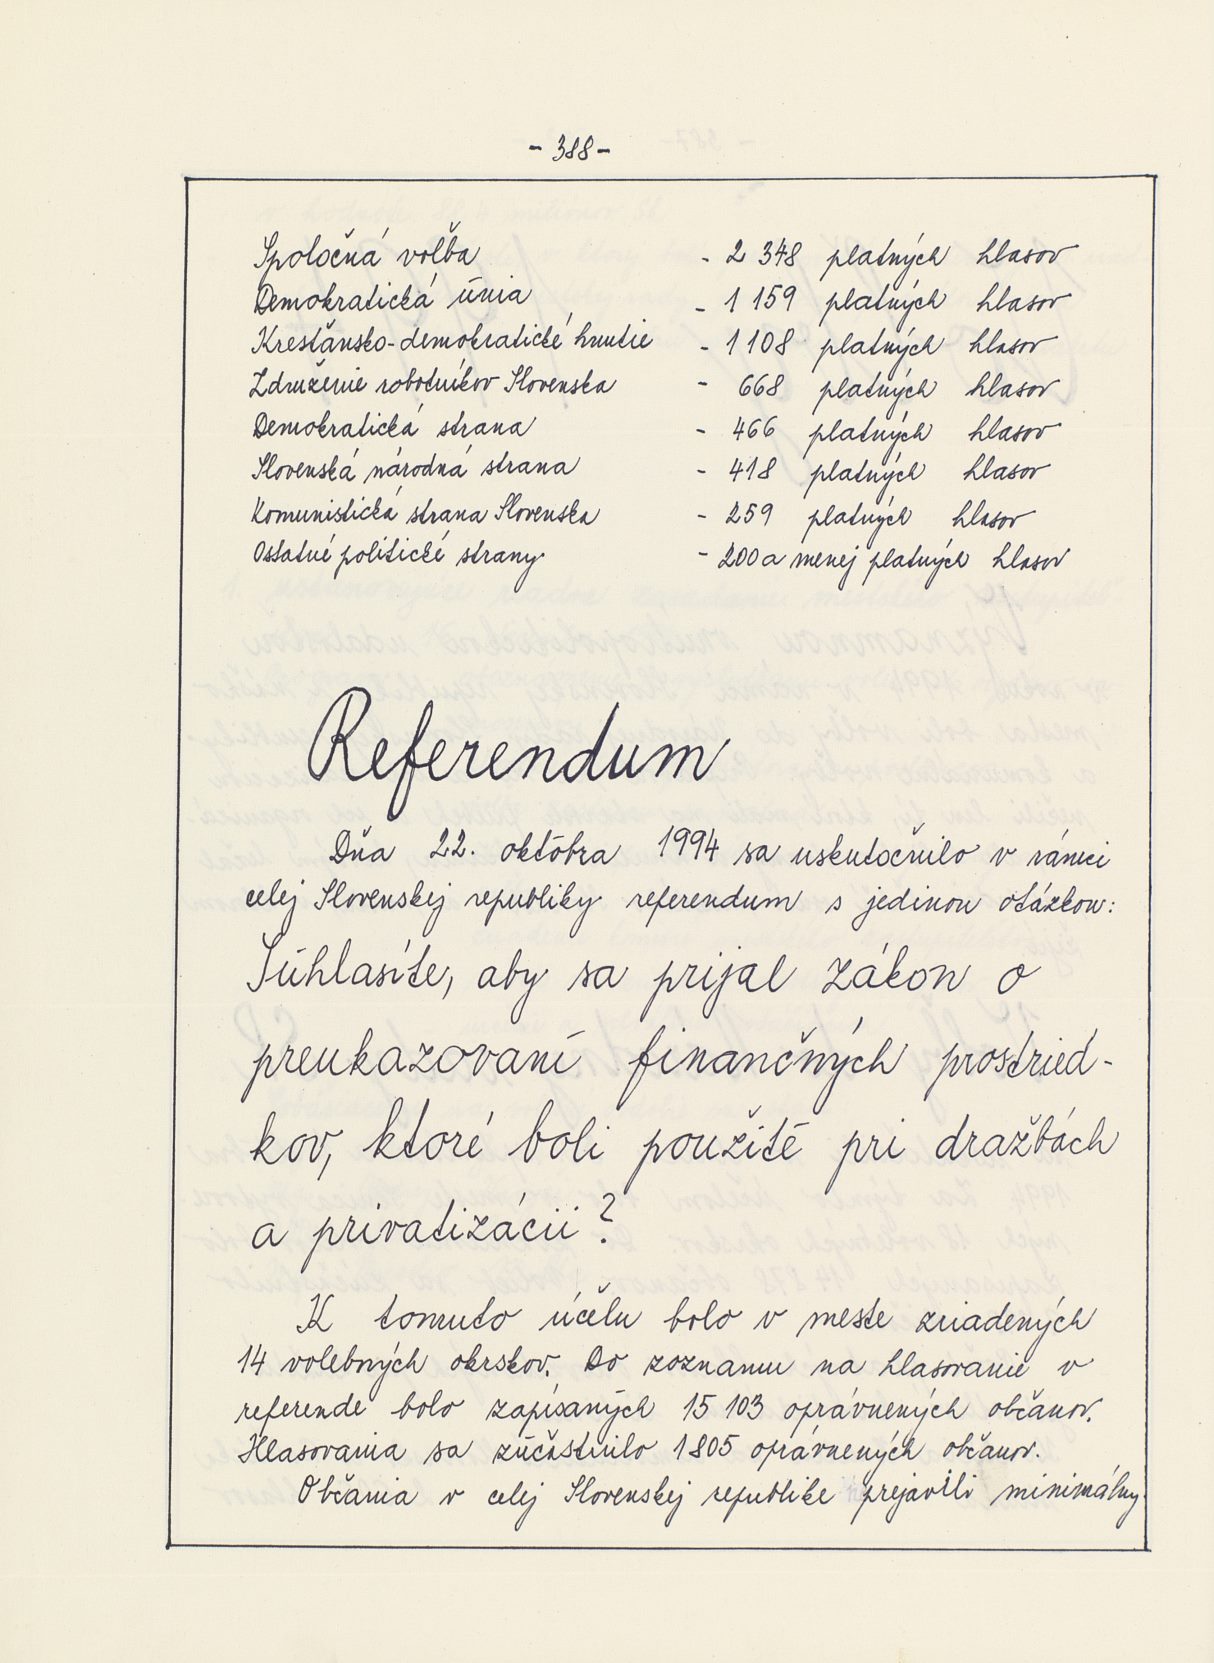 - 388 -
Spoločná voľba - 2 348 platných hlasov
Demokratická únia - 1 159 platných hlasov
Kresťansko-demokratické hnutie - 1 108 platných hlasov
Združenie robotníkov Slovenska - 668 platných hlasov
Demokratická strana - 466 platných hlasov
Slovenská národná strana - 418 platných hlasov
Komunistická strana Slovenska - 259 platných hlasov
Ostatné politické strany - 200 a menej platných hlasov
Referendum
Dňa 22. októbra 1994 sa uskutočnilo v rámci
celej Slovenskej republiky referendum s jedinou otázkou:
Súhlasíte, aby sa prijal zákon o
preukazovaní finančných prostried-
kov, ktoré boli použité pri dražbách
a privatizácii?
K tomuto účelu bolo v meste zriadených
14 volebných okrskov. Do zoznamu na hlasovanie v
referende bolo zapísaných 15 103 oprávnených občanov.
Hlasovania sa zúčastnilo 1 805 oprávnených občanov.
Občania v celej Slovenskej republike prejavili minimálny